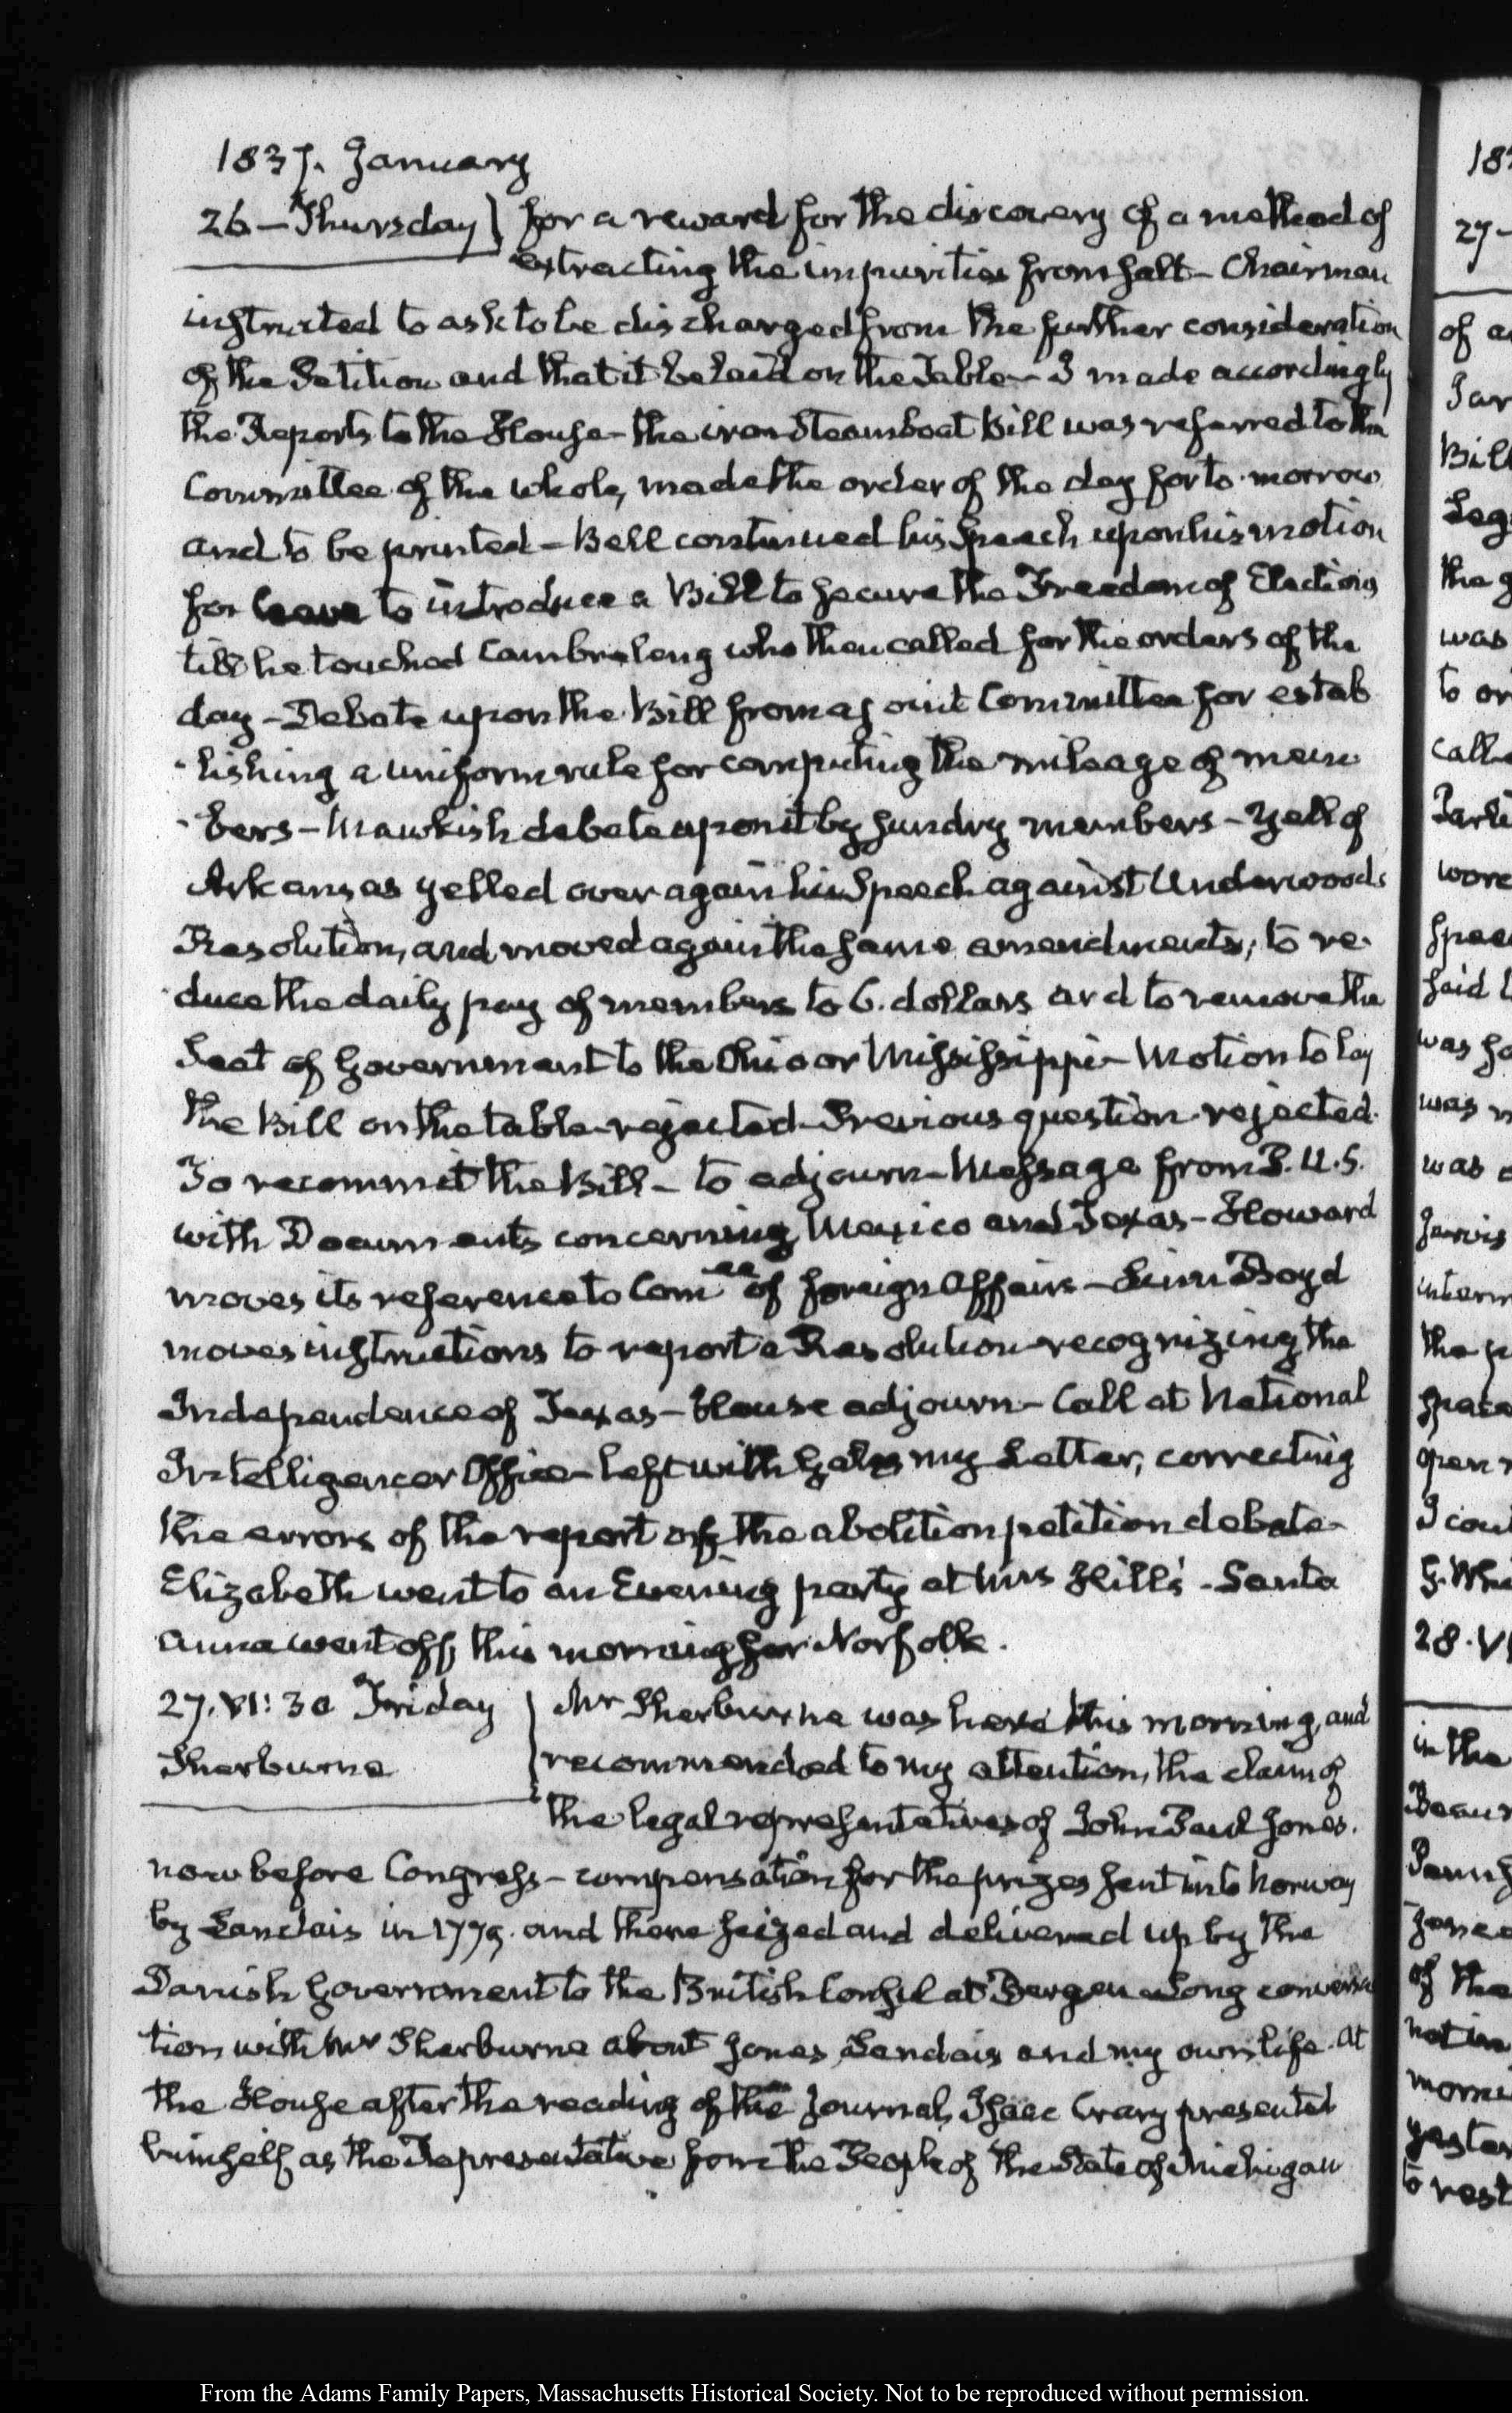 1837. January
26 – Thursday } for a reward for the discovery of a method of
extracting the impurities from salt – Chairman
instructed to ask to be discharged from the further consideration
of the Petition and that it be laid on the Table – I made accordingly
the Reports to the House – the iron Steamboat Bill was referred to the
Committee of the whole, made the order of the day for to-morrow
and to be printed – Bell continued his Speech upon his motion
for leave to introduce a Bill to secure the Freedom of Elections
till he touched Cambreleng who then called for the orders of the
day – Debate upon the Bill from a joint Committee for estab
-lishing a uniform rule for computing the mileage of mem
-bers – Mawkish debate upon it by sundry members – Yell of
Arkansas yelled over again his Speech against Underwoods
Resolution, and moved again the same amendments; to re-
-duce the daily pay of members to 6. dollars and to remove the
Seat of Government to the Ohio or Mississippi – Motion to lay
the Bill on the table rejected – Previous question rejected.
To recommit the Bill – to adjourn – Message from P. U.S.
with Documents concerning Mexico and Texas – Howard
moves its reference to Com.ee of foreign Affairs – Linn Boyd
moves instructions to report a Resolution recognizing the
Independence of Texas – House adjourn – Call at National
Intelligencer Office – left with Gales my Letter, correcting
the errors of the report of the abolition petition debate –
Elizabeth went to an Evening party at Mrs Hill's – Santa
Anna went off this morning for Norfolk.
27. VI: 30 Friday } Mr Sherburne was here this morning, and
Sherburne } recommended to my attention, the claim of
the legal representatives of John Paul Jones.
now before Congress – compensation for the prizes sent into Norway
by Landais in 1779. and there seized and delivered up by the
Danish Government to the British Consul at Bergen – Long conversa
tion with Mr Sherburne about Jones, Landais and my own life. At
the House after the reading of the Journal, Isaac Crary presented
himself as the Representative from the People of the State of Michigan
18
27 –
of a
Bill
the
was
to
was
was
was
the
28. VI
in the
of the
to rest
From the Adams Family Papers, Massachusetts Historical Society. Not to be reproduced without permission.